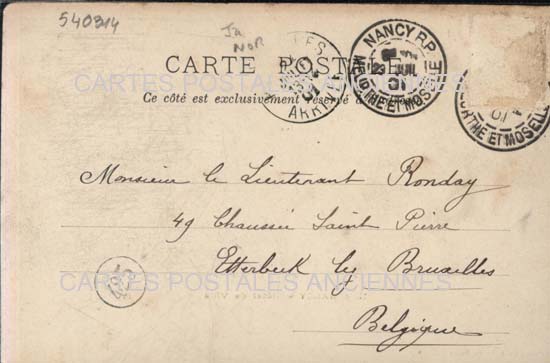 540314
Ja
Nor
NANCY R.P.
23 JUIL
01
MEURTHE ET MOSELLE
ARRIV
CARTE POSTALE
CARTES POSTALES ANCIENNES
Ce côté est exclusivement réservé à
01
MEURTHE ET MOSELLE
Monsieur le Lieutenant Ronday
49 Chaussée Saint Pierre
Etterbeck lez Bruxelles
CARTES POSTALES ANCIENNES
Belgique